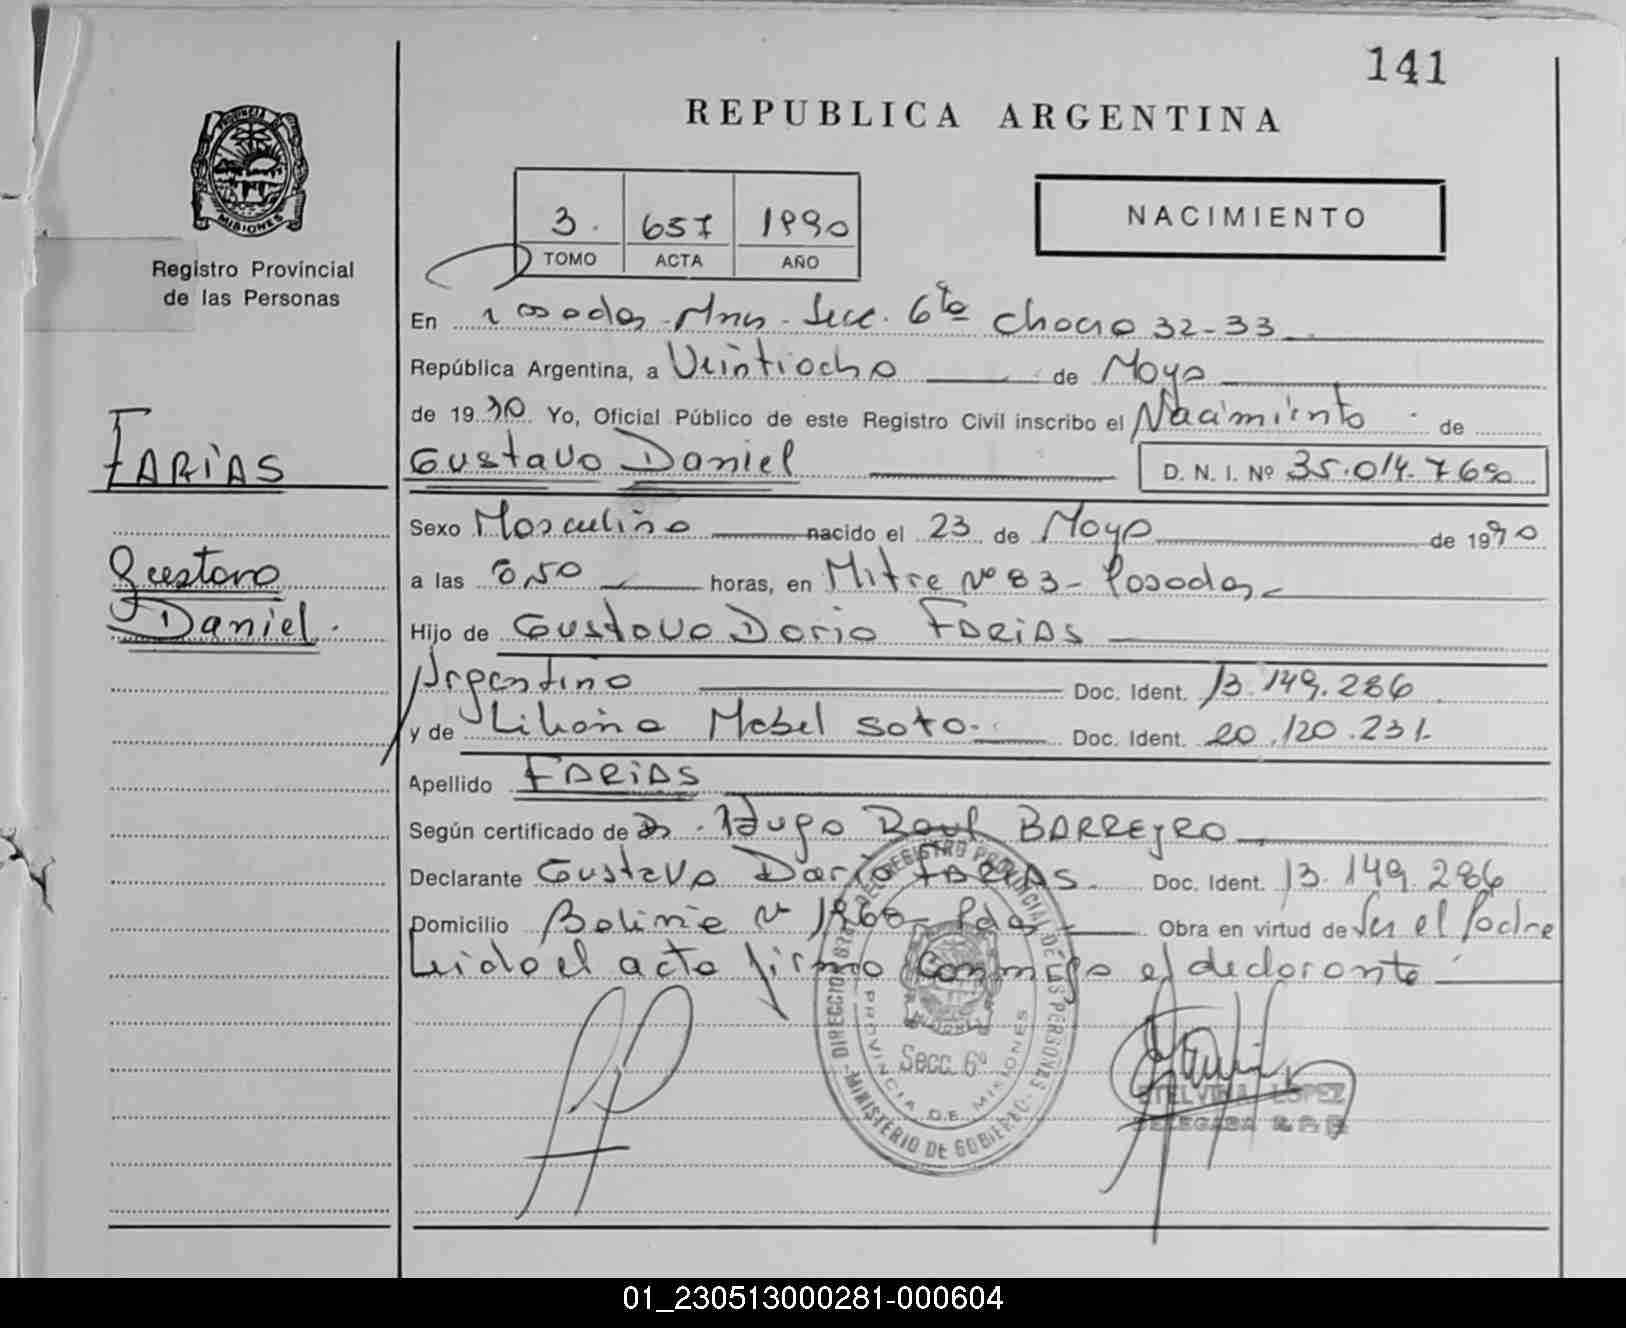 141
REPUBLICA ARGENTINA
PROVINCIA DE
MISIONES
Registro Provincial
de las Personas
3. 657 1990
TOMO ACTA AÑO
NACIMIENTO
En Posadas - Mnes - Secc. 6ta Chacra 32-33
República Argentina, a Veintiocho de Mayo
de 1990 Yo, Oficial Público de este Registro Civil inscribo el Nacimiento de
FARIAS
Gustavo Daniel D. N. I. Nº 35.014.760
Sexo Masculino nacido el 23 de Mayo de 1990
Gustavo
Daniel.
a las 8,50 horas, en Mitre Nº 83 - Posadas
Hijo de Gustavo Dario FARIAS
Argentino Doc. Ident. 13.149.286
y de Liliana Mabel Soto Doc. Ident. 20.120.231
Apellido FARIAS
Según certificado de Dr. Hugo Raul BARREYRO
Declarante Gustavo Dario FARIAS. Doc. Ident. 13.149.286
Domicilio Bolivia Nº 1868 - Pdas Obra en virtud de Ser el Padre
Leido el acta firma conmigo el declarante
DIRECCION GRAL. DEL REGISTRO PROVINCIAL DE LAS PERSONAS
MINISTERIO DE GOBIERNO
PROVINCIA DE MISIONES
Secc. 6º
ETELVINA LOPEZ
DELEGADA R.P.P
01_230513000281-000604